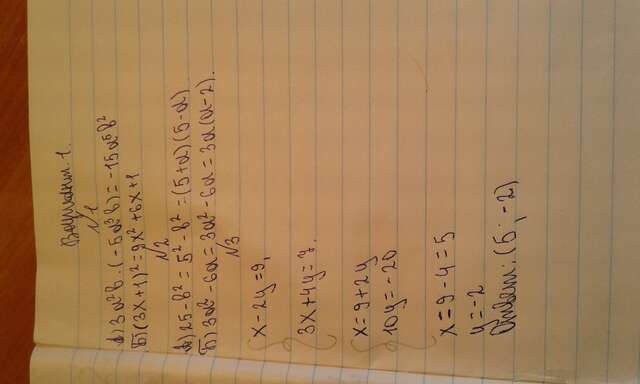 Вариант 1.
№1
А) 3a²b · (-5a³b) = -15a⁵b²
Б) (3x+1)² = 9x² + 6x + 1
№2
А) 25 - b² = 5² - b² = (5+a)(5-a)
Б) 3a² - 6a = 3a² - 6a = 3a(a-2).
№3
x - 2y = 9,
3x + 4y = 7.
x = 9 + 2y
10y = -20
x = 9 - 4 = 5
y = -2
Ответ: (5; -2)